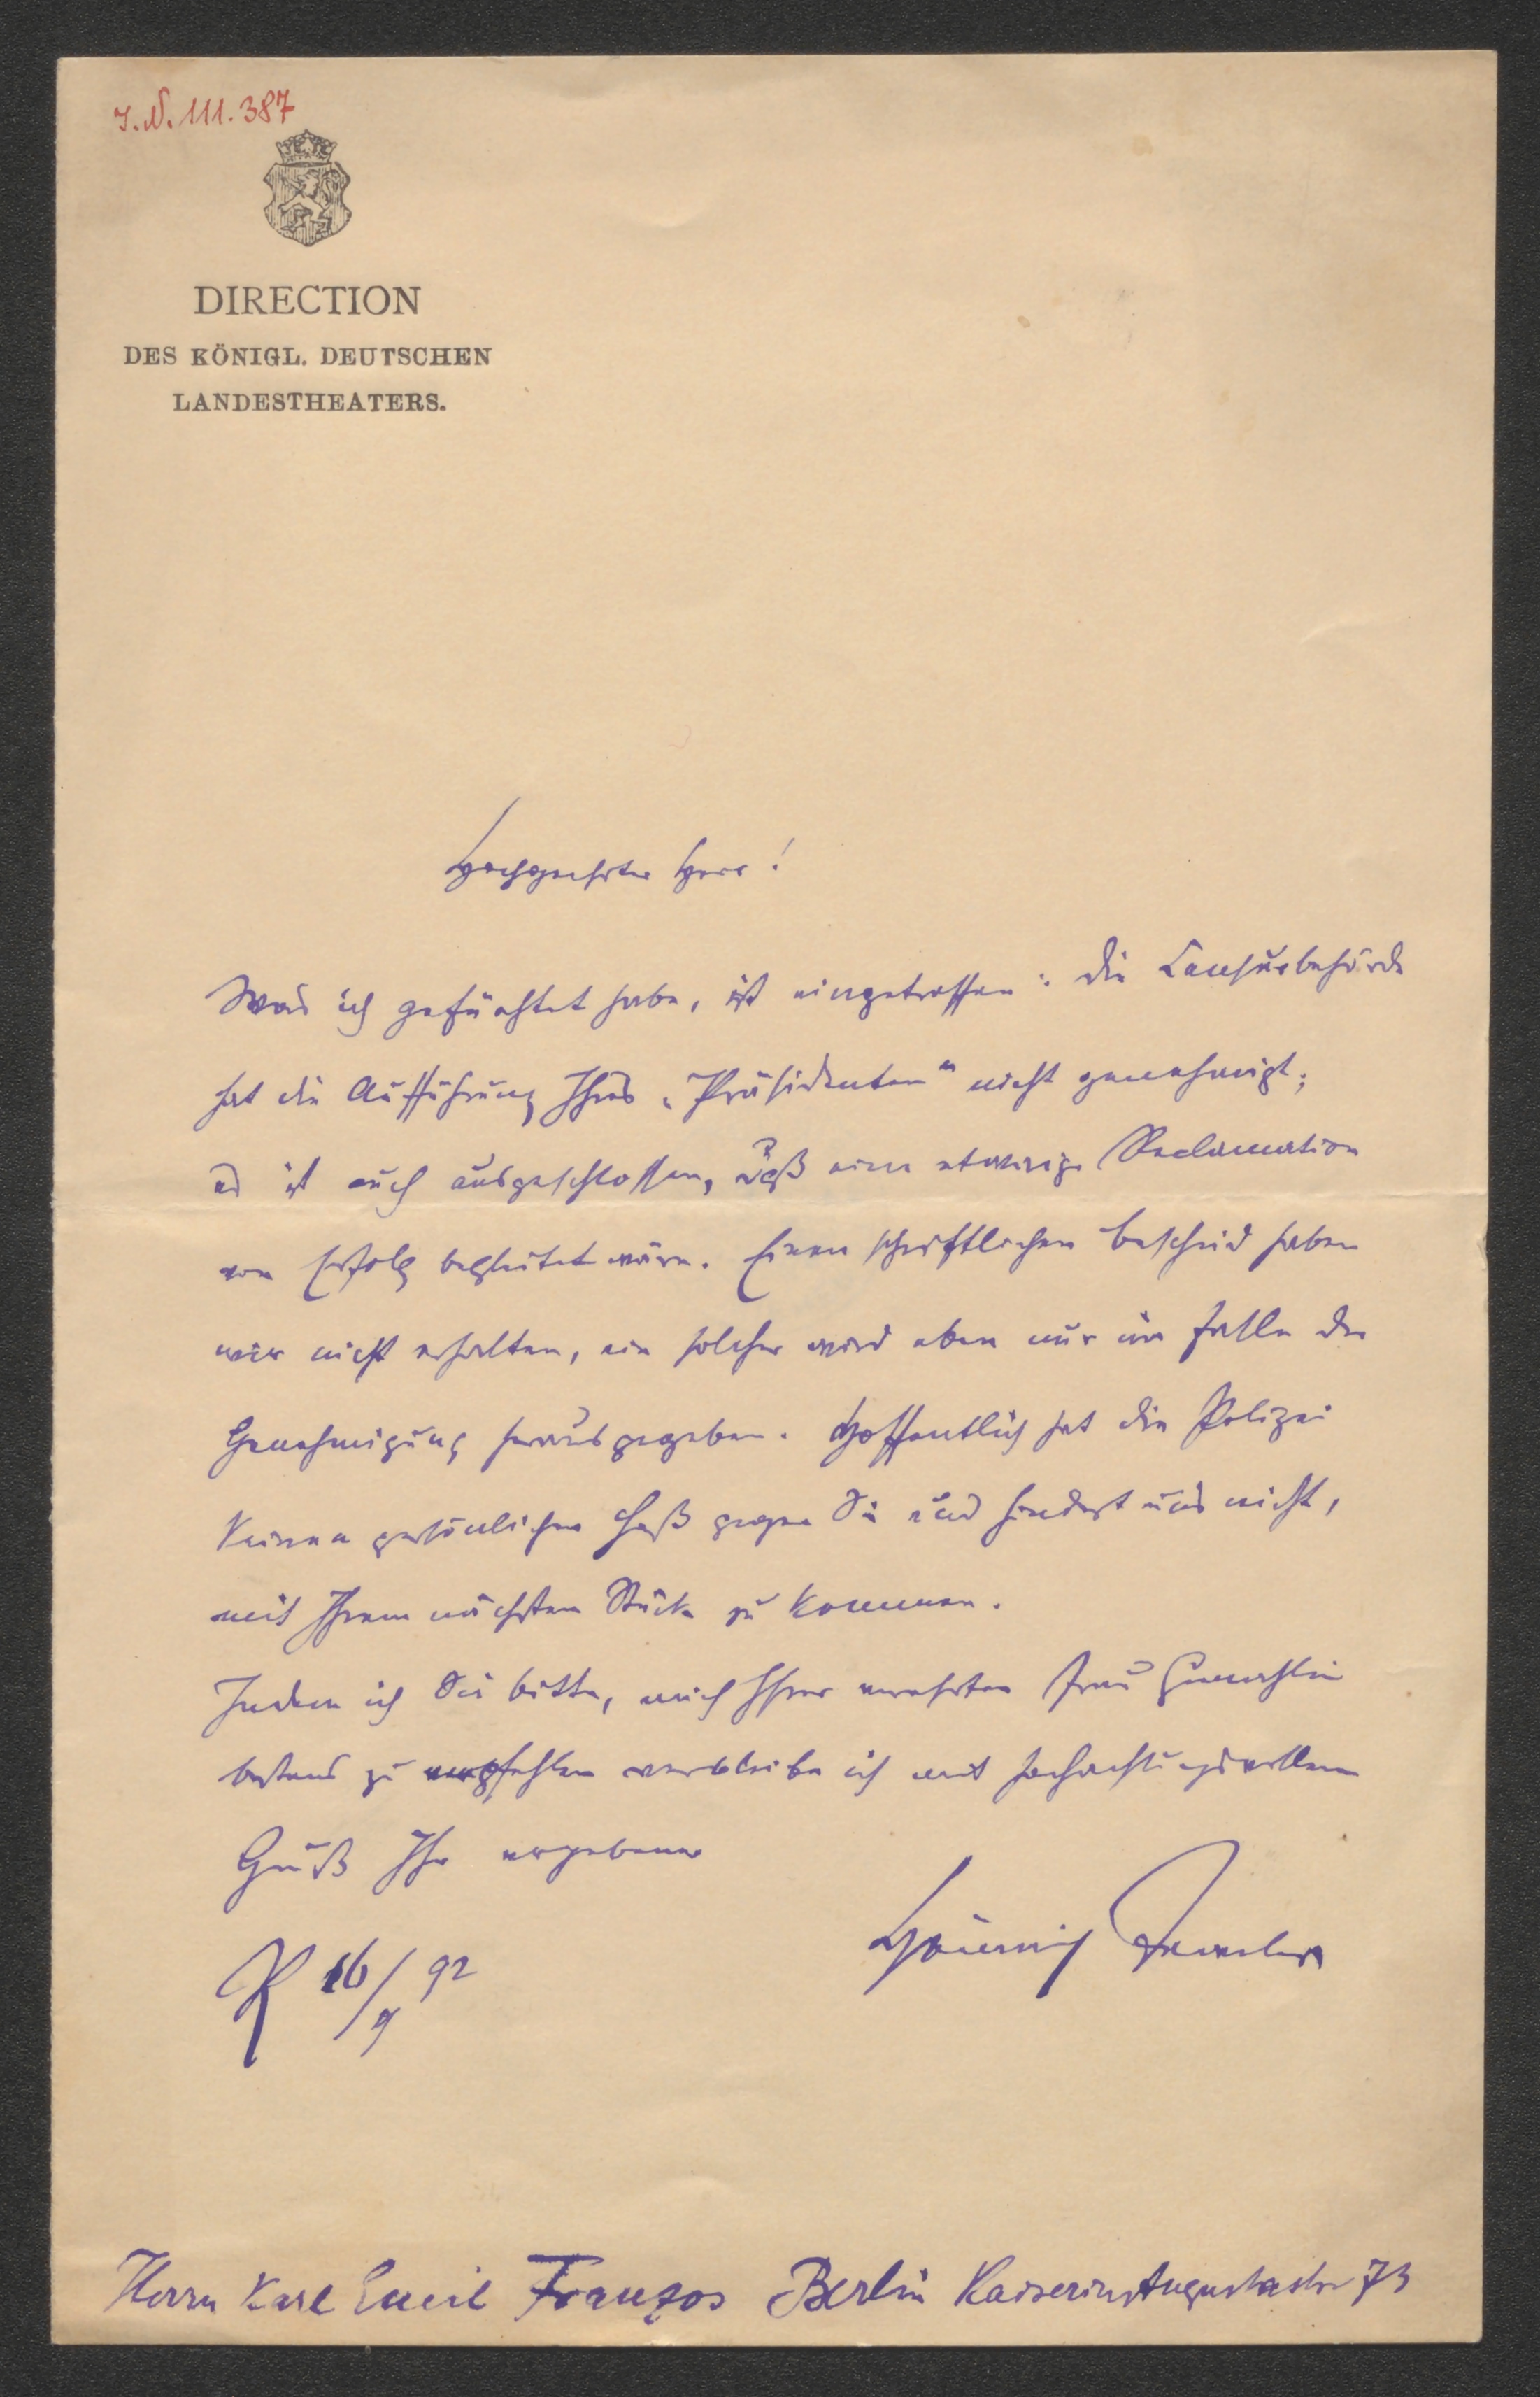 J.N. 111.387
DIRECTION
DES KÖNIGL. DEUTSCHEN
LANDESTHEATERS.
Hochgeehrter Herr!
Was ich gefürchtet habe, ist eingetroffen: die Censurbehörde
hat die Aufführung Ihres „Präsidenten“ nicht genehmigt;
es ist auch ausgeschlossen, daß eine etwaige Reclamation
von Erfolg begleitet wäre. Einen schriftlichen Bescheid haben
wir nicht erhalten, ein solcher wird eben nur im Falle der
Genehmigung herausgegeben. Hoffentlich hat die Polizei
keinen persönlichen Haß gegen Sie und hindert uns nicht,
mit Ihrem nächsten Stück zu kommen.
Indem ich Sie bitte, mich Ihrer verehrten Frau Gemahlin
bestens zu empfehlen verbleibe ich mit hochachtungsvollem
Gruß Ihr ergebener
Heinrich
P 16/9 92
Herrn Karl Emil Franzos Berlin Kaiserin Augustastr 73